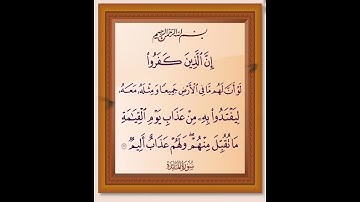 بِسْمِ اللَّهِ الرَّحْمَٰنِ الرَّحِيمِ
إِنَّ ٱلَّذِينَ كَفَرُوا۟
لَوْ أَنَّ لَهُم مَّا فِى ٱلْأَرْضِ جَمِيعًا وَمِثْلَهُۥ مَعَهُۥ
لِيَفْتَدُوا۟ بِهِۦ مِنْ عَذَابِ يَوْمِ ٱلْقِيَٰمَةِ
مَا تُقُبِّلَ مِنْهُمْ ۖ وَلَهُمْ عَذَابٌ أَلِيمٌ
سُورَةُ المَائِدَة